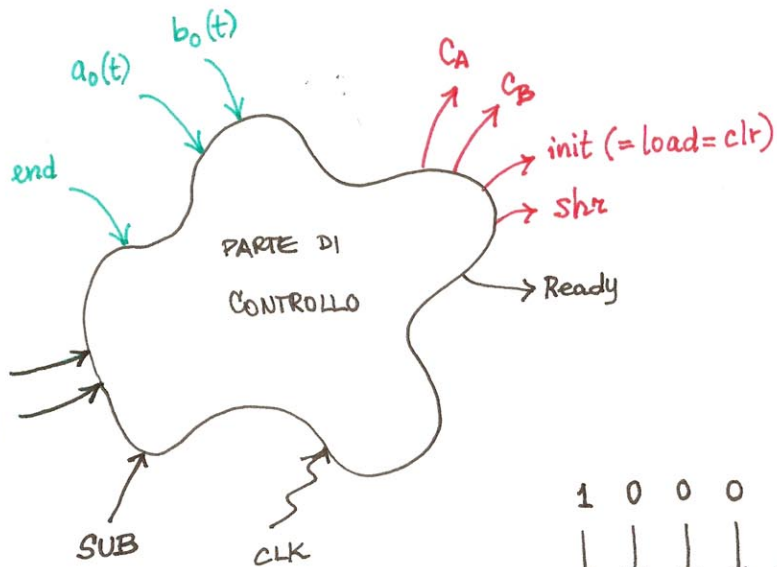 b₀(t)
a₀(t)
end
C_A
C_B
init (= load = clr)
shr
PARTE DI
CONTROLLO
Ready
SUB
CLK
1 0 0 0